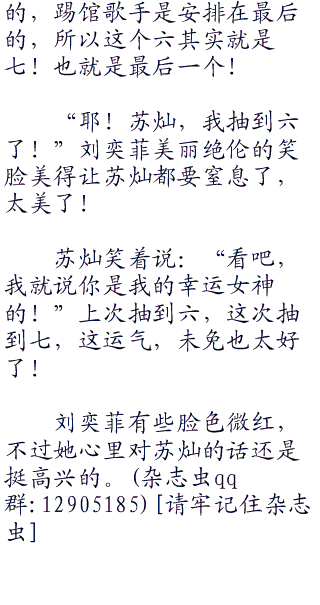 的，踢馆歌手是安排在最后
的，所以这个六其实就是
七！也就是最后一个！
“耶！苏灿，我抽到六
了！”刘奕菲美丽绝伦的笑
脸美得让苏灿都要窒息了，
太美了！
苏灿笑着说：“看吧，
我就说你是我的幸运女神
的！”上次抽到六，这次抽
到七，这运气，未免也太好
了！
刘奕菲有些脸色微红，
不过她心里对苏灿的话还是
挺高兴的。(杂志虫qq
群:12905185)[请牢记住杂志
虫]